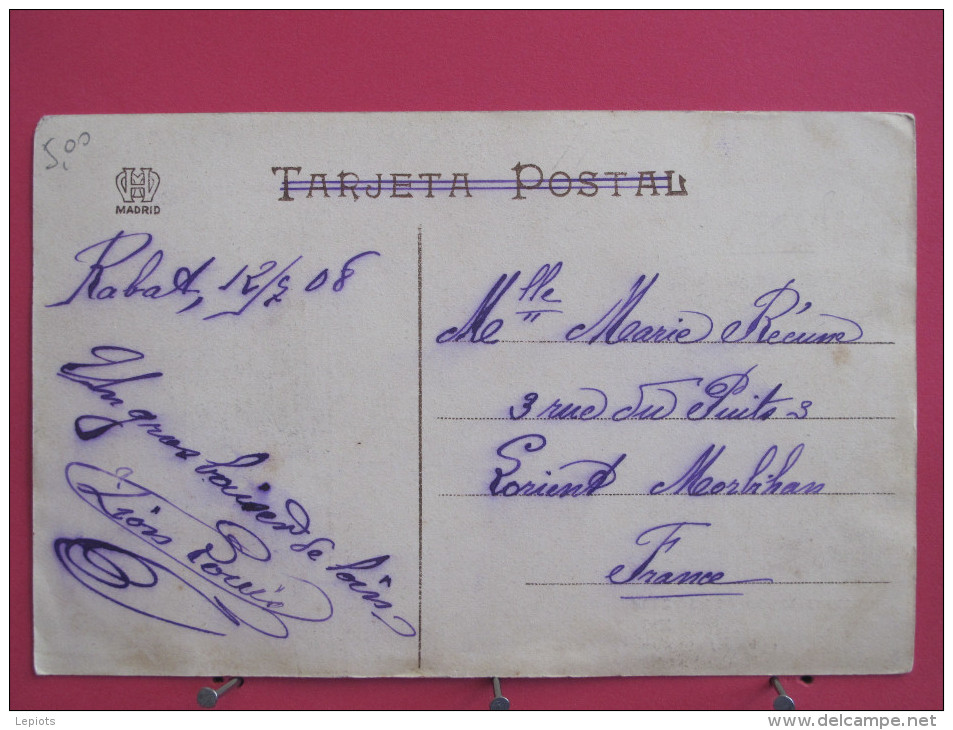 5,00
MADRID
TARJETA POSTAL
Rabat, 12/5 08
Un gros baiser de loin
Louis
Mlle Marie Récum
3 rue du Puits 3
Lorient Morbihan
France
Lepiots
delcampe.net